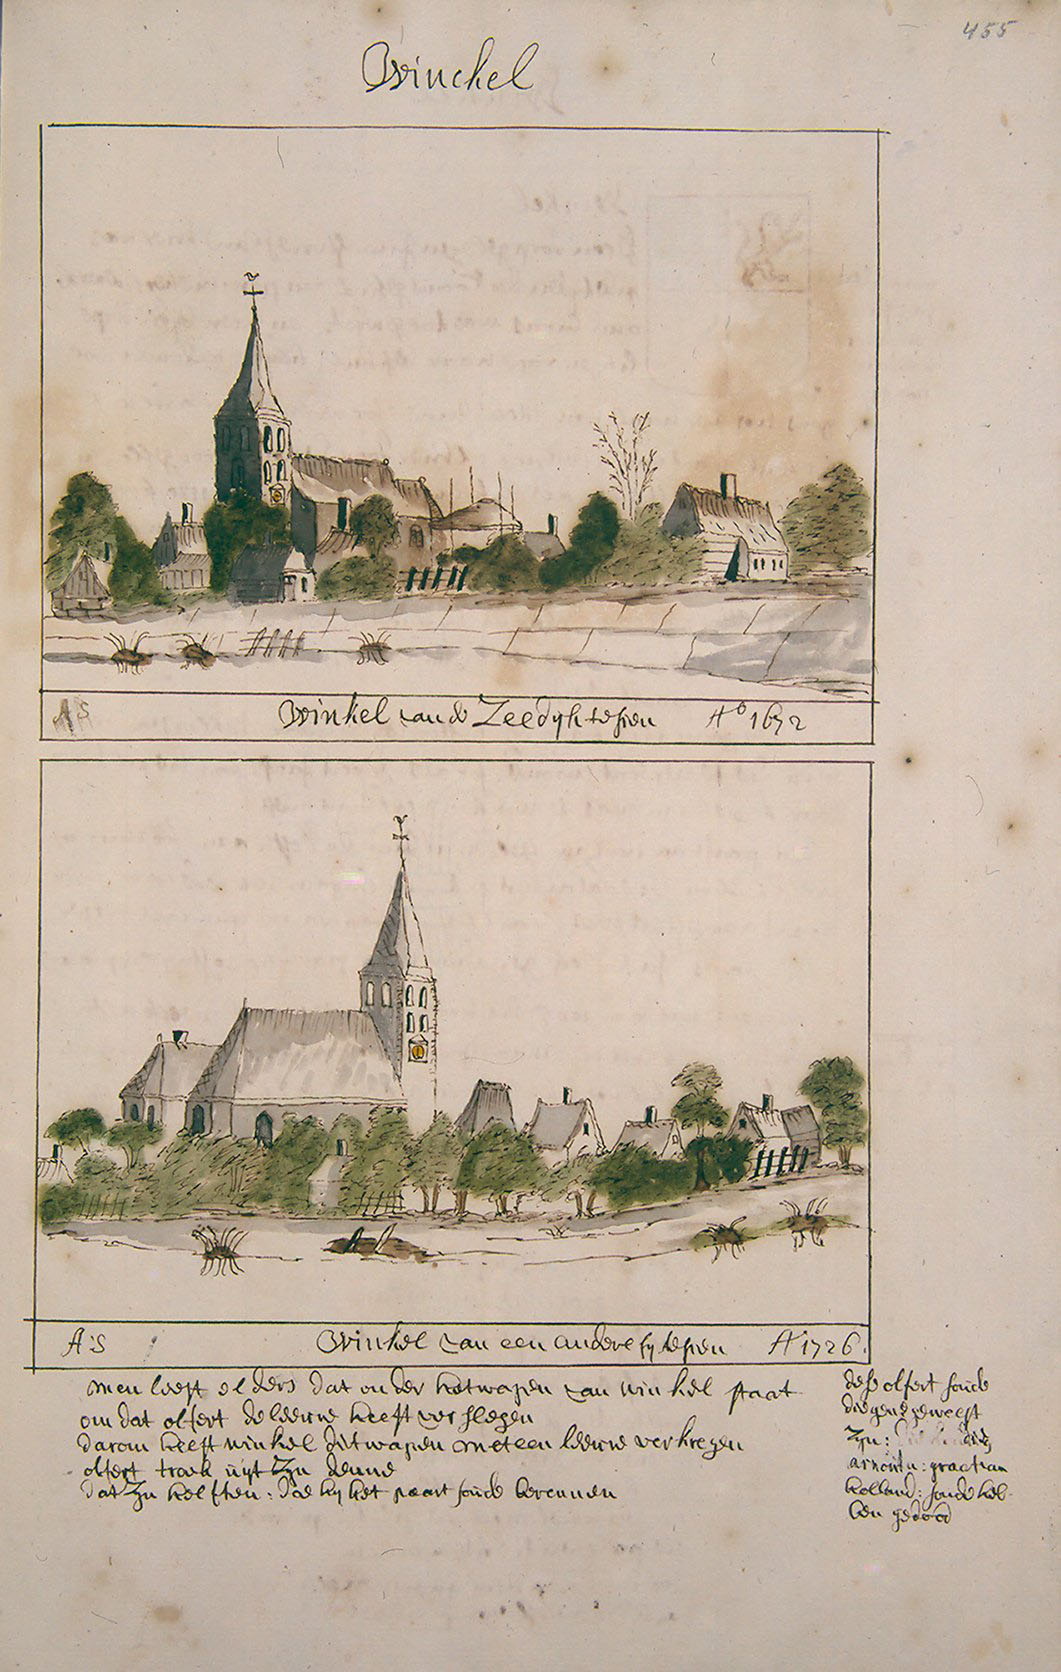 455
Winckel
AS
Winkel van de Zeedyk te sien Aº 1672
A:S
Winkel van een andere sy te sien Aº 1726.
men leest elders dat onder het wapen van winkel staat
om dat olfert de leeuw heeft verslegen
darom heeft winkel dit wapen met een leeuw verkregen
olfert trock uyt zyn
dat zyn helften: doe hy het paart soude berennen
dese olfert soude
diegene geweest
zyn:
arnoutu: graef van
holland: soude heb-
ben gedood